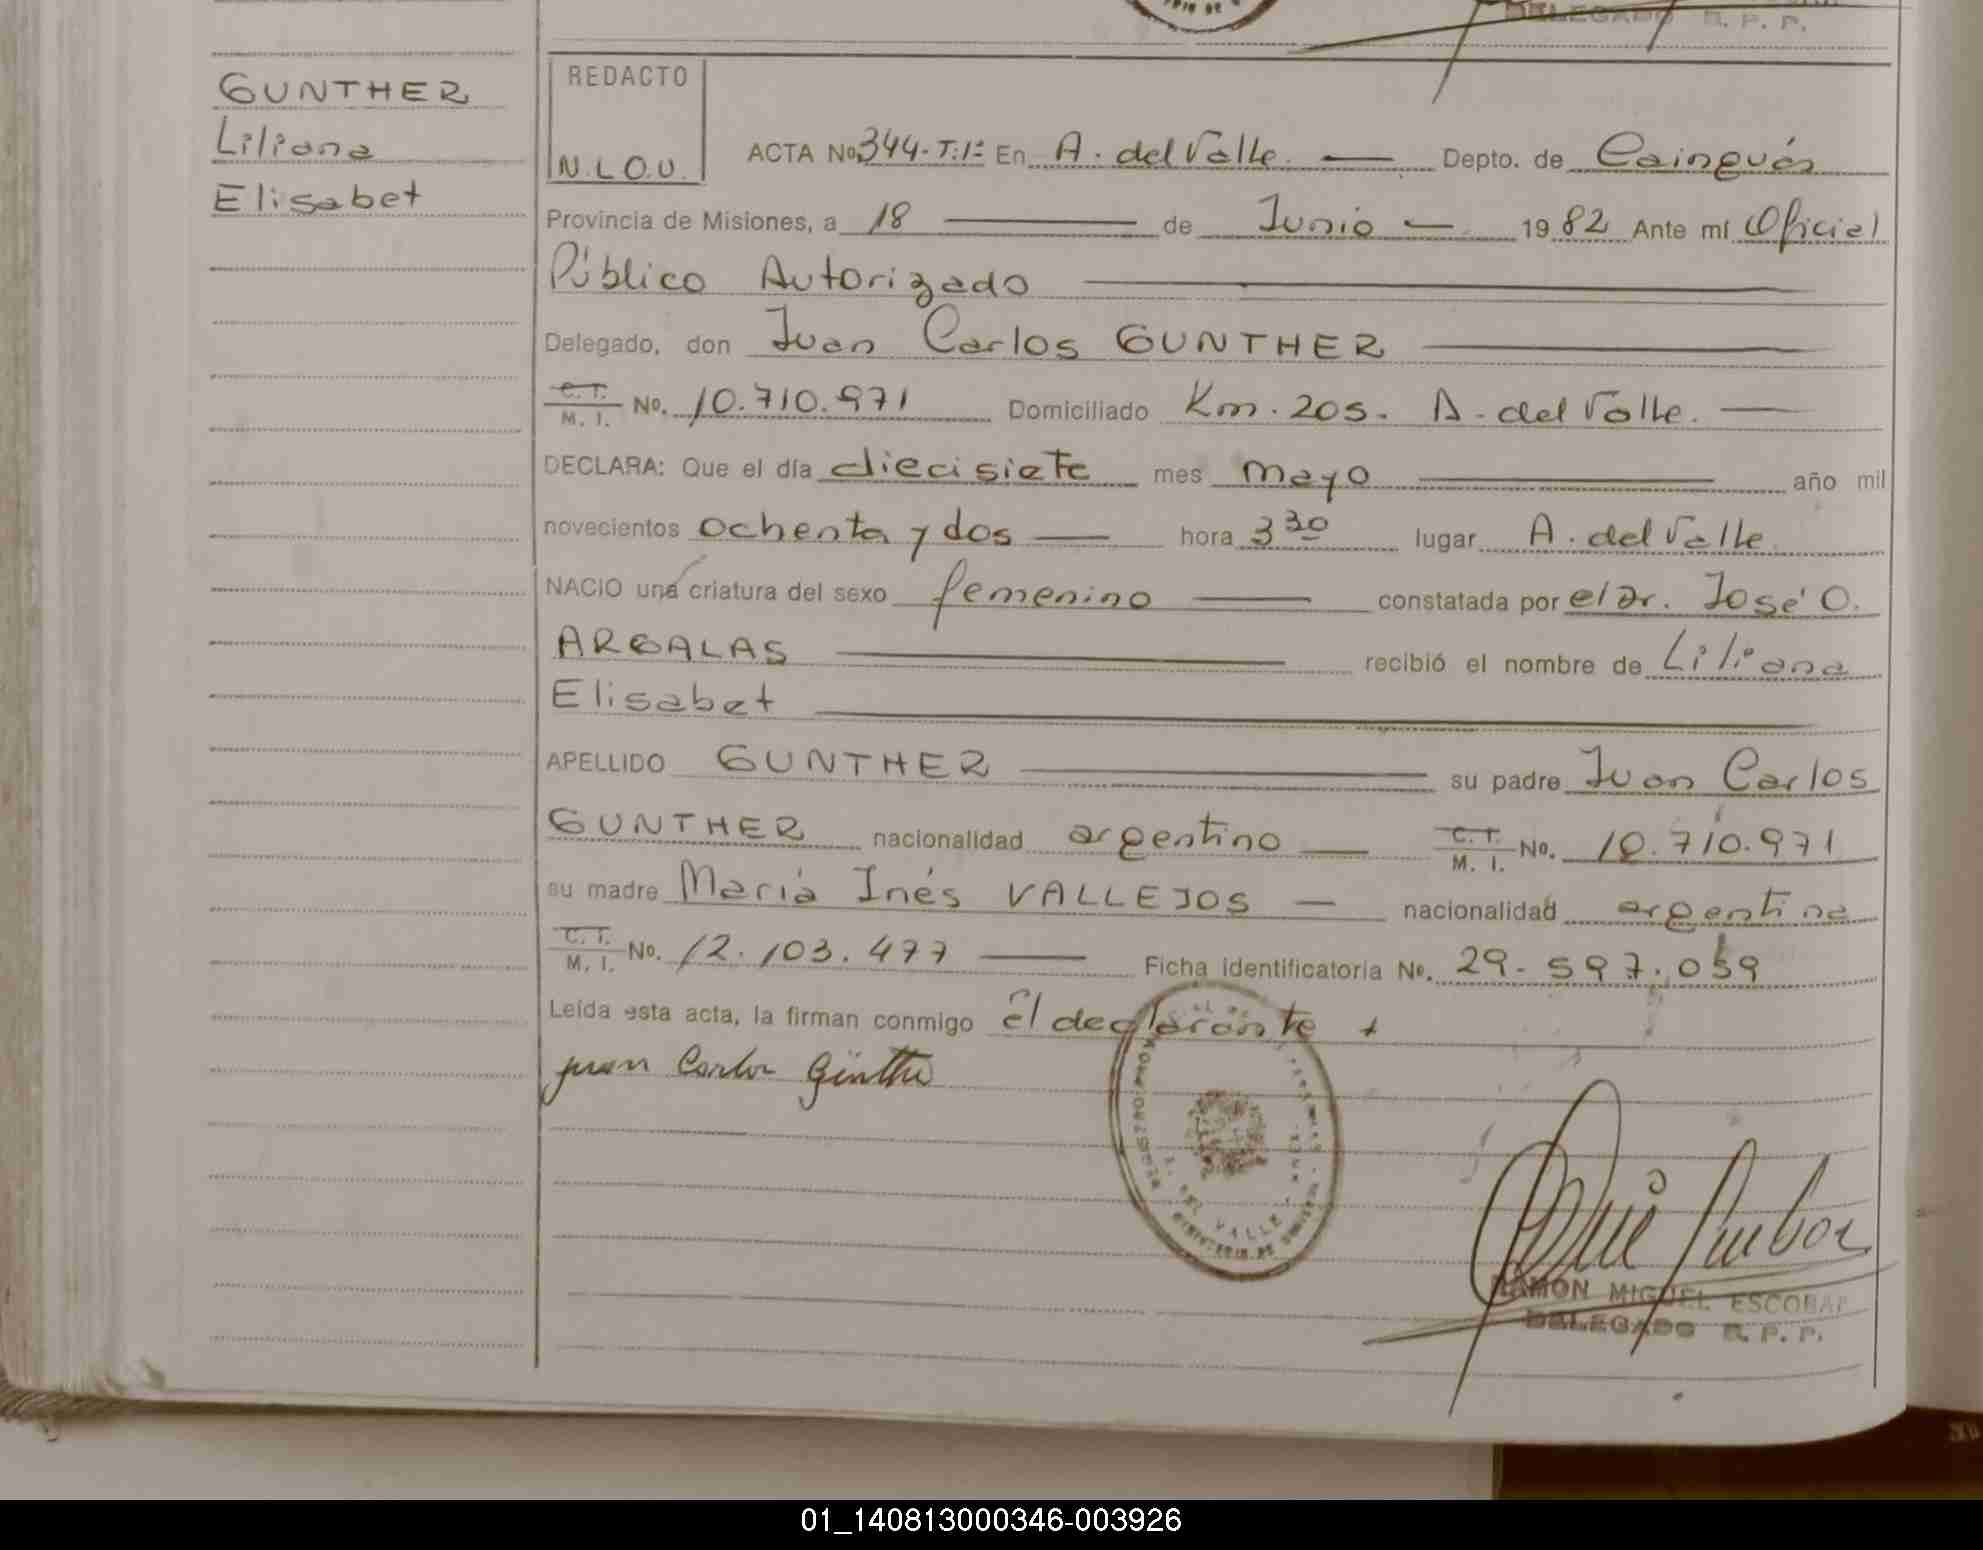 DELEGADO R. P. P.
GUNTHER
Liliana
Elisabet
REDACTO
N.L.O.U.
ACTA No. 344-T:1º En A. del Valle. — Depto. de Cainguás
Provincia de Misiones, a 18 — de Junio — 1982 Ante mí Oficial
Público Autorizado
Delegado, don Juan Carlos GUNTHER
C. T. / M. I. No. 10.710.971 Domiciliado Km. 205. A. del Valle. —
DECLARA: Que el día diecisiete mes mayo — año mil
novecientos ochenta y dos — hora 3 30 lugar A. del Valle
NACIO una criatura del sexo femenino — constatada por el Dr. José O.
ARGALAS — recibió el nombre de Liliana
Elisabet
APELLIDO GUNTHER — su padre Juan Carlos
GUNTHER nacionalidad argentino — C. T. / M. I. No. 10.710.971
su madre María Inés VALLEJOS — nacionalidad argentina
C. T. / M. I. No. 12.103.477 — Ficha identificatoria No. 29.597.059
Leída esta acta, la firman conmigo el declarante
Juan Carlos Günther
VALLE
RAMON MIGUEL ESCOBAR
DELEGADO R. P. P.
01_140813000346-003926